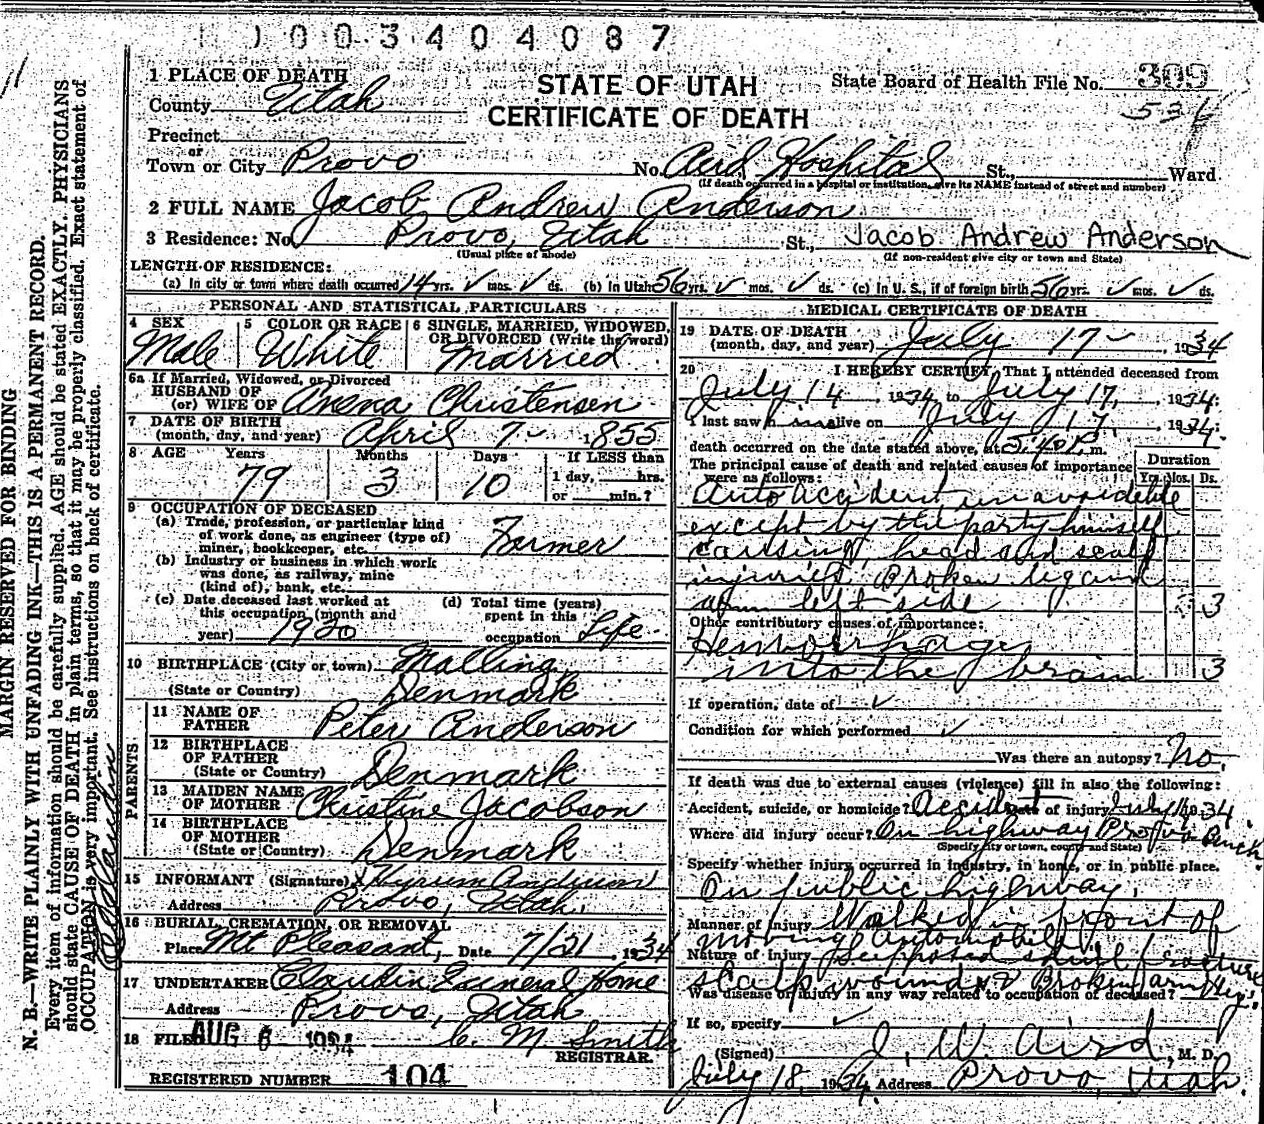 1003404087
STATE OF UTAH
CERTIFICATE OF DEATH
State Board of Health File No. 309
536
1 PLACE OF DEATH
County Utah
Precinct
or
Town or City Provo No. Aird Hospital St., Ward
(If death occurred in a hospital or institution, give its NAME instead of street and number)
2 FULL NAME Jacob Andrew Anderson
3 Residence: No. Provo, Utah St., Jacob Andrew Anderson
(Usual place of abode) (If non-resident give city or town and State)
LENGTH OF RESIDENCE:
(a) In city or town where death occurred 14 yrs. ✓ mos. ✓ ds. (b) In Utah 56 yrs. ✓ mos. ✓ ds. (c) In U. S., if of foreign birth 56 yrs. ✓ mos. ✓ ds.
PERSONAL AND STATISTICAL PARTICULARS
4 SEX Male
5 COLOR OR RACE White
6 SINGLE, MARRIED, WIDOWED, OR DIVORCED (Write the word) Married
6a If Married, Widowed, or Divorced
HUSBAND OF
(or) WIFE OF Arena Christensen
7 DATE OF BIRTH
(month, day, and year) April 7- 1855
8 AGE Years 79 Months 3 Days 10 If LESS than
1 day, hrs.
or min.?
9 OCCUPATION OF DECEASED
(a) Trade, profession, or particular kind
of work done, as engineer (type of)
miner, bookkeeper, etc. Farmer
(b) Industry or business in which work
was done, as railway, mine
(kind of), bank, etc.
(c) Date deceased last worked at
this occupation (month and
year) 1920
(d) Total time (years)
spent in this
occupation Life
10 BIRTHPLACE (City or town) Malling
(State or Country) Denmark
PARENTS
11 NAME OF
FATHER Peter Anderson
12 BIRTHPLACE
OF FATHER
(State or Country) Denmark
13 MAIDEN NAME
OF MOTHER Christine Jacobson
14 BIRTHPLACE
OF MOTHER
(State or Country) Denmark
15 INFORMANT (Signature) Hyrum Anderson
Address Provo, Utah.
16 BURIAL, CREMATION, OR REMOVAL
Place Mt Pleasant, Date 7/21 1934
17 UNDERTAKER Claudin Funeral Home
Address Provo, Utah
18 FILED AUG 6 1934 C. M. Smith
REGISTRAR.
REGISTERED NUMBER 104
MEDICAL CERTIFICATE OF DEATH
19 DATE OF DEATH
(month, day, and year) July 17- , 1934
20 I HEREBY CERTIFY, That I attended deceased from
July 14, 1934, to July 17, 1934:
I last saw him alive on July 17, 1934.
death occurred on the date stated above, at 5:40 P. m.
The principal cause of death and related causes of importance
were as follows:
Duration
Yrs. Mos. Ds.
Auto accident unavoidable
except by the party himself
causing head and scalp
injuries Broken leg and
arm left side 3
Other contributory causes of importance:
Hemorrhage
into the brain 3
If operation, date of ✓
Condition for which performed ✓
Was there an autopsy? No.
If death was due to external causes (violence) fill in also the following:
Accident, suicide, or homicide? Accident Date of injury July 1934
Where did injury occur? On highway Provo
(Specify city or town, county and State)
Specify whether injury occurred in industry, in home, or in public place.
On public highway.
Manner of injury Walked in front of
moving automobile
Nature of injury Supposed skull fracture
scalp wound & Broken arm & leg.
Was disease or injury in any way related to occupation of deceased?
If so, specify ✓
(Signed) J. W. Aird, M. D.
July 18, 1934. Address Provo, Utah.
MARGIN RESERVED FOR BINDING
N. B.—WRITE PLAINLY WITH UNFADING INK—THIS IS A PERMANENT RECORD.
Every item of information should be carefully supplied. AGE should be stated EXACTLY. PHYSICIANS
should state CAUSE OF DEATH in plain terms, so that it may be properly classified. Exact statement of
OCCUPATION is very important. See instructions on back of certificate.